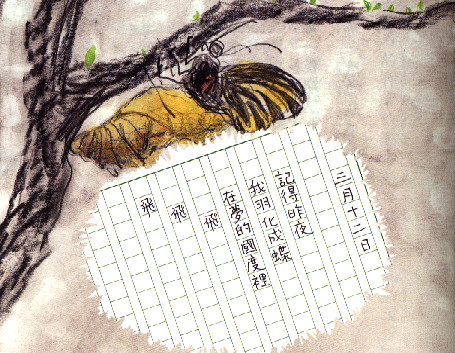 三月十二日
記得昨夜
我羽化成蝶
在夢的國度裡
飛
飛
飛